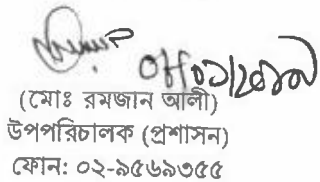 (মোঃ রমজান আলী)
উপপরিচালক (প্রশাসন)
ফোন: ০২-৯৫৬৯৩৫৫